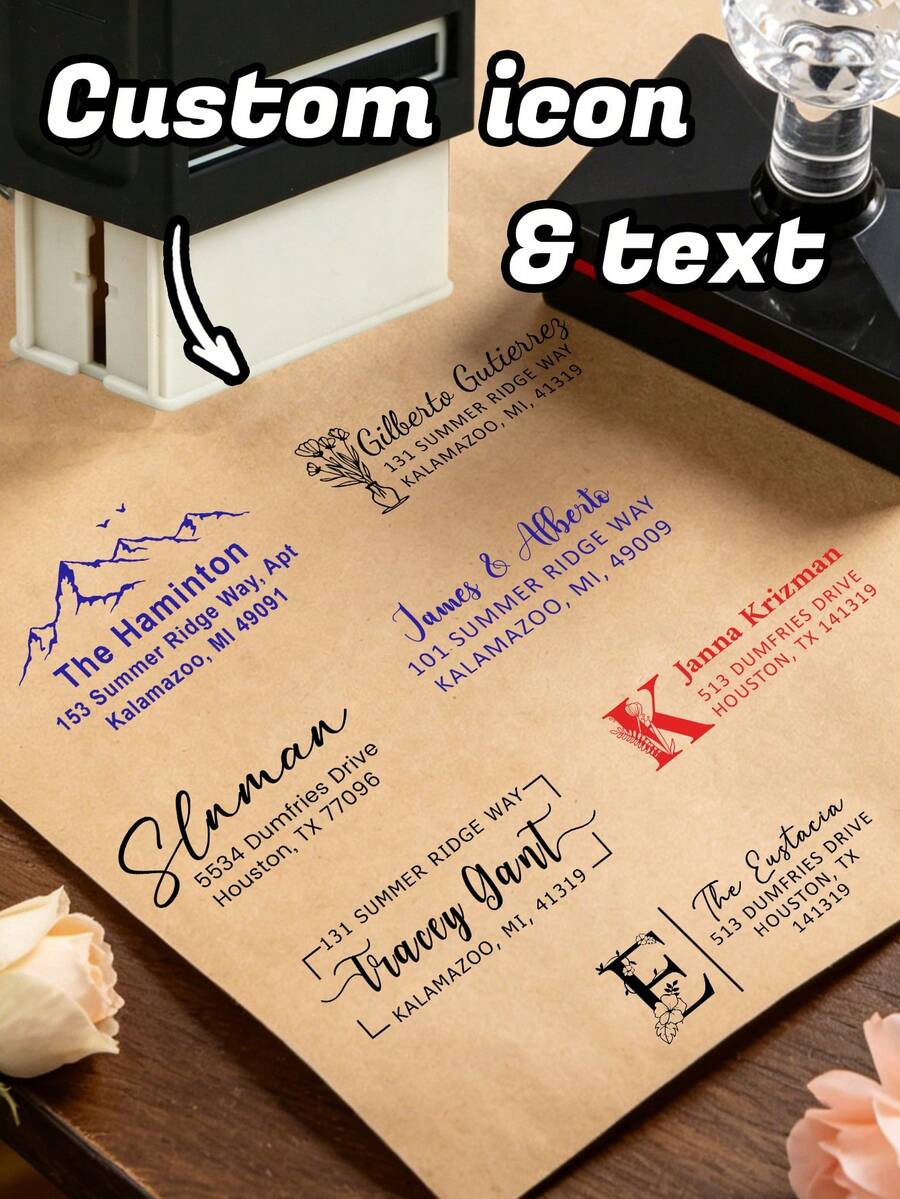 Custom icon
& text
Gilberto Gutierrez
131 SUMMER RIDGE WAY
KALAMAZOO, MI, 41319
The Haminton
153 Summer Ridge Way, Apt
Kalamazoo, MI 49091
James & Alberto
101 SUMMER RIDGE WAY
KALAMAZOO, MI, 49009
K
Janna Krizman
513 DUMFRIES DRIVE
HOUSTON, TX 141319
Slnman
5534 Dumfries Drive
Houston, TX 77096
131 SUMMER RIDGE WAY
Tracey Gant
KALAMAZOO, MI, 41319
E
The Eustacia
513 DUMFRIES DRIVE
HOUSTON, TX
141319